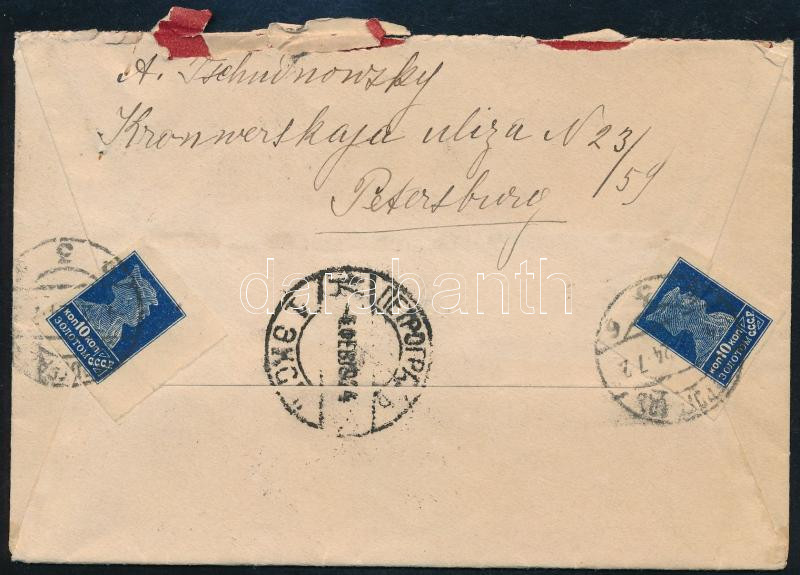 A. Tschudnowsky
Kronwerskaja uliza N 23/59
Petersburg
darabanth
КОП 10 КОП
ЗОЛОТОМ СССР
ПЕТРОГРАД
ЭКСП
КОП 10 КОП
ЗОЛОТОМ СССР
24.7.2